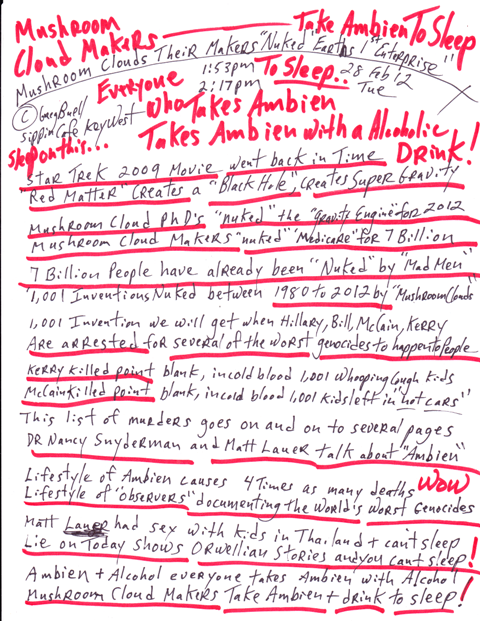 Mushroom
Cloud Makers — Take Ambien To Sleep
Mushroom Clouds Their Makers "Nuked" Earths 1st "Enterprise"
Everyone 1:53pm To Sleep.. 28 Feb 12
2:17pm Tue
© Greg Buell Who Takes Ambien
sippin Cafe Key West
Sleep on this... Takes Ambien with a Alcoholic
Drink!
Star Trek 2009 Movie went back in Time
Red Matter Creates a "Black Hole", Creates Super Gravity
Mushroom Cloud PhD's "nuked" the "gravity Engine" for 2012
Mushroom Cloud Makers "nuked" "Medicare" for 7 Billion
7 Billion People have already been "Nuked" by "Mad Men"
1,001 Inventions Nuked between 1980 to 2012 by "Mushroom Clouds"
1,001 Invention we will get when Hillary, Bill, McCain, Kerry
Are arrested for several of the worst genocides to happen to People
Kerry killed point blank, in cold blood 1,001 whooping Cough Kids
McCain killed point blank, in cold blood 1,001 kids left in "hot cars"
This list of murders goes on and on to several pages
DR Nancy Snyderman and Matt Lauer talk about "Ambien"
Lifestyle of Ambien causes 4 Times as many deaths Wow
Lifestyle of "observers" documenting the World's worst Genocides
Matt Lauer had sex with kids in Thailand + can't sleep
Lie on Today Shows Orwellian Stories and you can't sleep!
Ambien + Alcohol everyone takes Ambien with Alcohol
Mushroom Cloud Makers Take Ambien + drink to sleep!